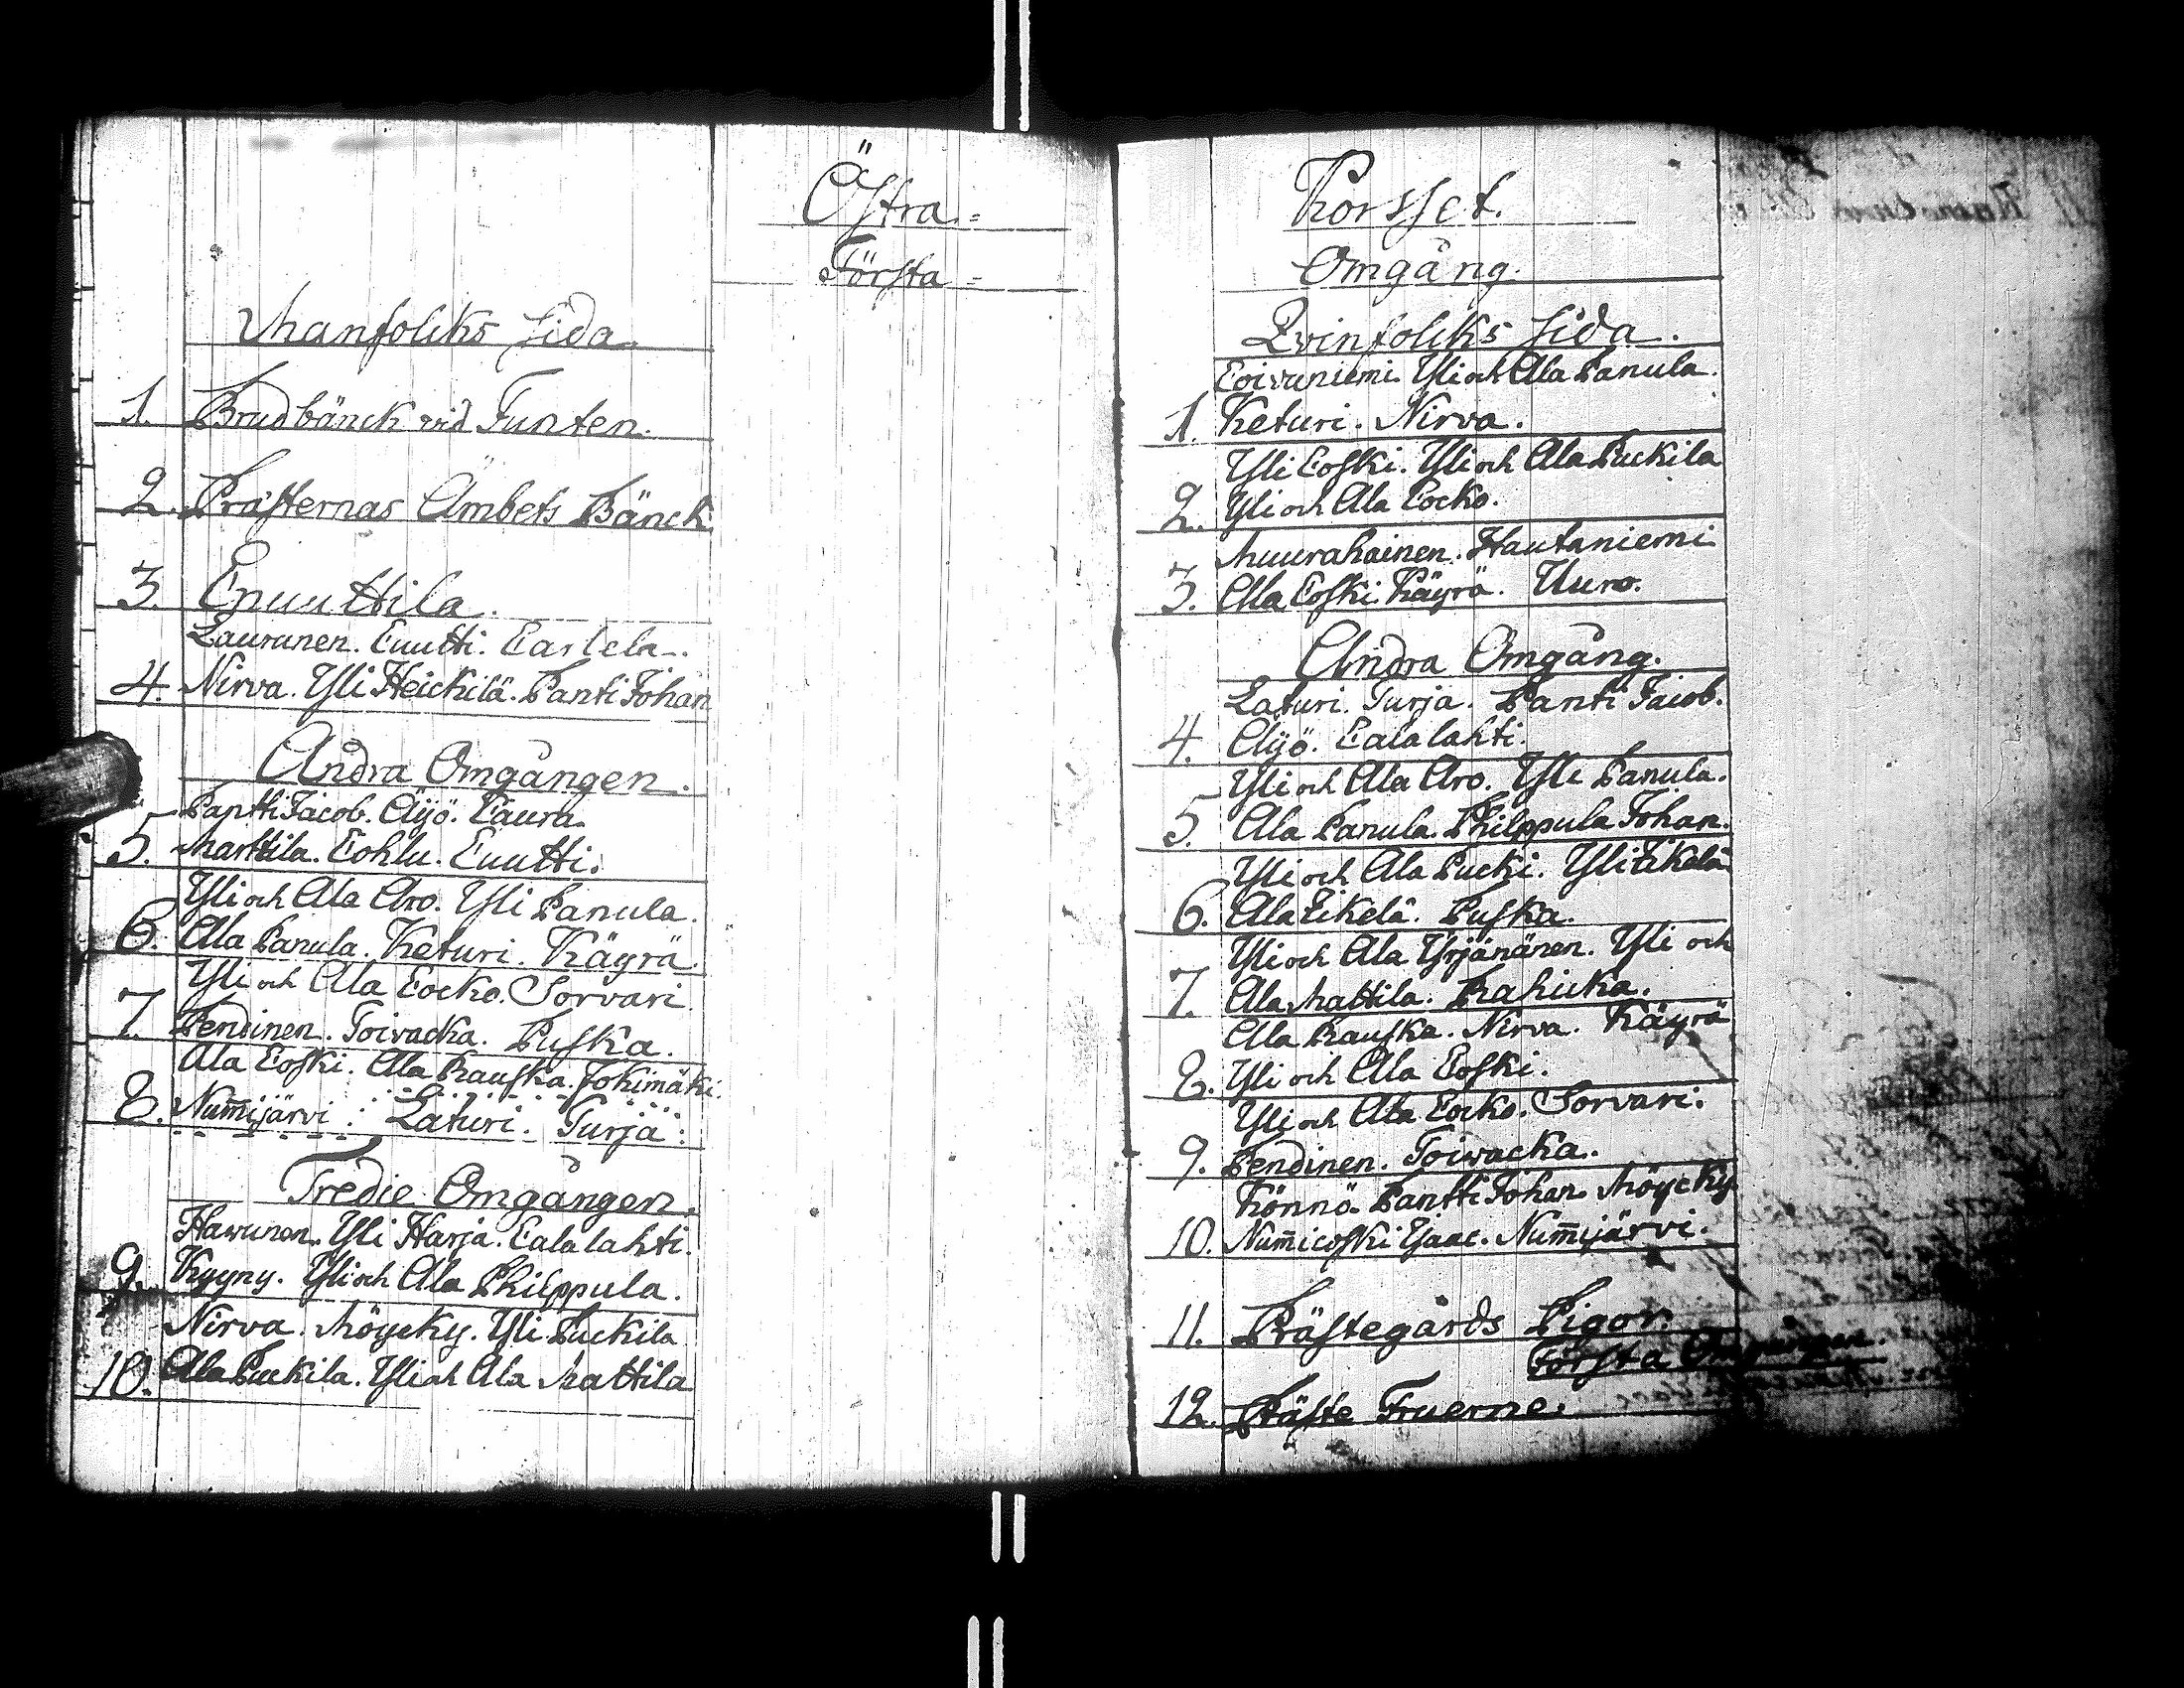 Östra=
Första=
Manfolcks sida.
1. Brudbänck vid Funten.
2. Prästernas Ämbets Bänck
3. Cnuuttila.
Laurunen. Cuutti. Carlela.
4. Nirva. Yli Heickilä. Panti Johan
Andra Omgången.
Pantti Jacob. Äijö. Caura.
5. Marttila. Cohlu. Cuutti.
Yli och Ala Aro. Yli Panula.
6. Ala Panula. Keturi. Käyrä.
Yli och Ala Cocko. Sorvari
7. Pendinen. Toivacka. Puska.
Ala Coski. Ala Rauska. Jokimäki.
8. Num̃ijärvi. Laturi. Turja.
Tredie Omgången.
Hawunen. Yli Harja. Calalahti.
9. Kyyny. Yli och Ala Philppula.
Nirva. Möycky. Yli Puckila
10. Ala Puckila. Yli och Ala Mattila
Korsset.
Omgång.
Qvinfolcks sida.
Coivuniemi. Yli och Ala Panula.
1. Keturi. Nirva.
Yli Coski. Yli och Ala Puckila
2. Yli och Ala Cocko.
Muurahainen. Hautaniemi
3. Ala Coski. Käyrä. Uuro.
Andra Omgång.
Laturi. Turja. Panti Jacob.
4. Äijö. Calalahti.
Yli och Ala Aro. Yli Panula.
5. Ala Panula. Philppula Johan.
Yli och Ala Pucki. Yli Eikelä
6. Ala Eikelä. Puska.
Yli och Ala Yrjänänen. Yli och
7. Ala Mattila. Rahicka.
Ala Rauska. Nirva. Käyrä
8. Yli och Ala Coski.
Yli och Ala Cocko. Sorvari.
9. Pendinen. Toivacka.
Könnö. Pantti Johan. Möycky
10. Num̃icoski Isaac. Num̃ijärvi.
11. Prästegårds Pigor.
Första Omgången.
12. Präste Fruerne.